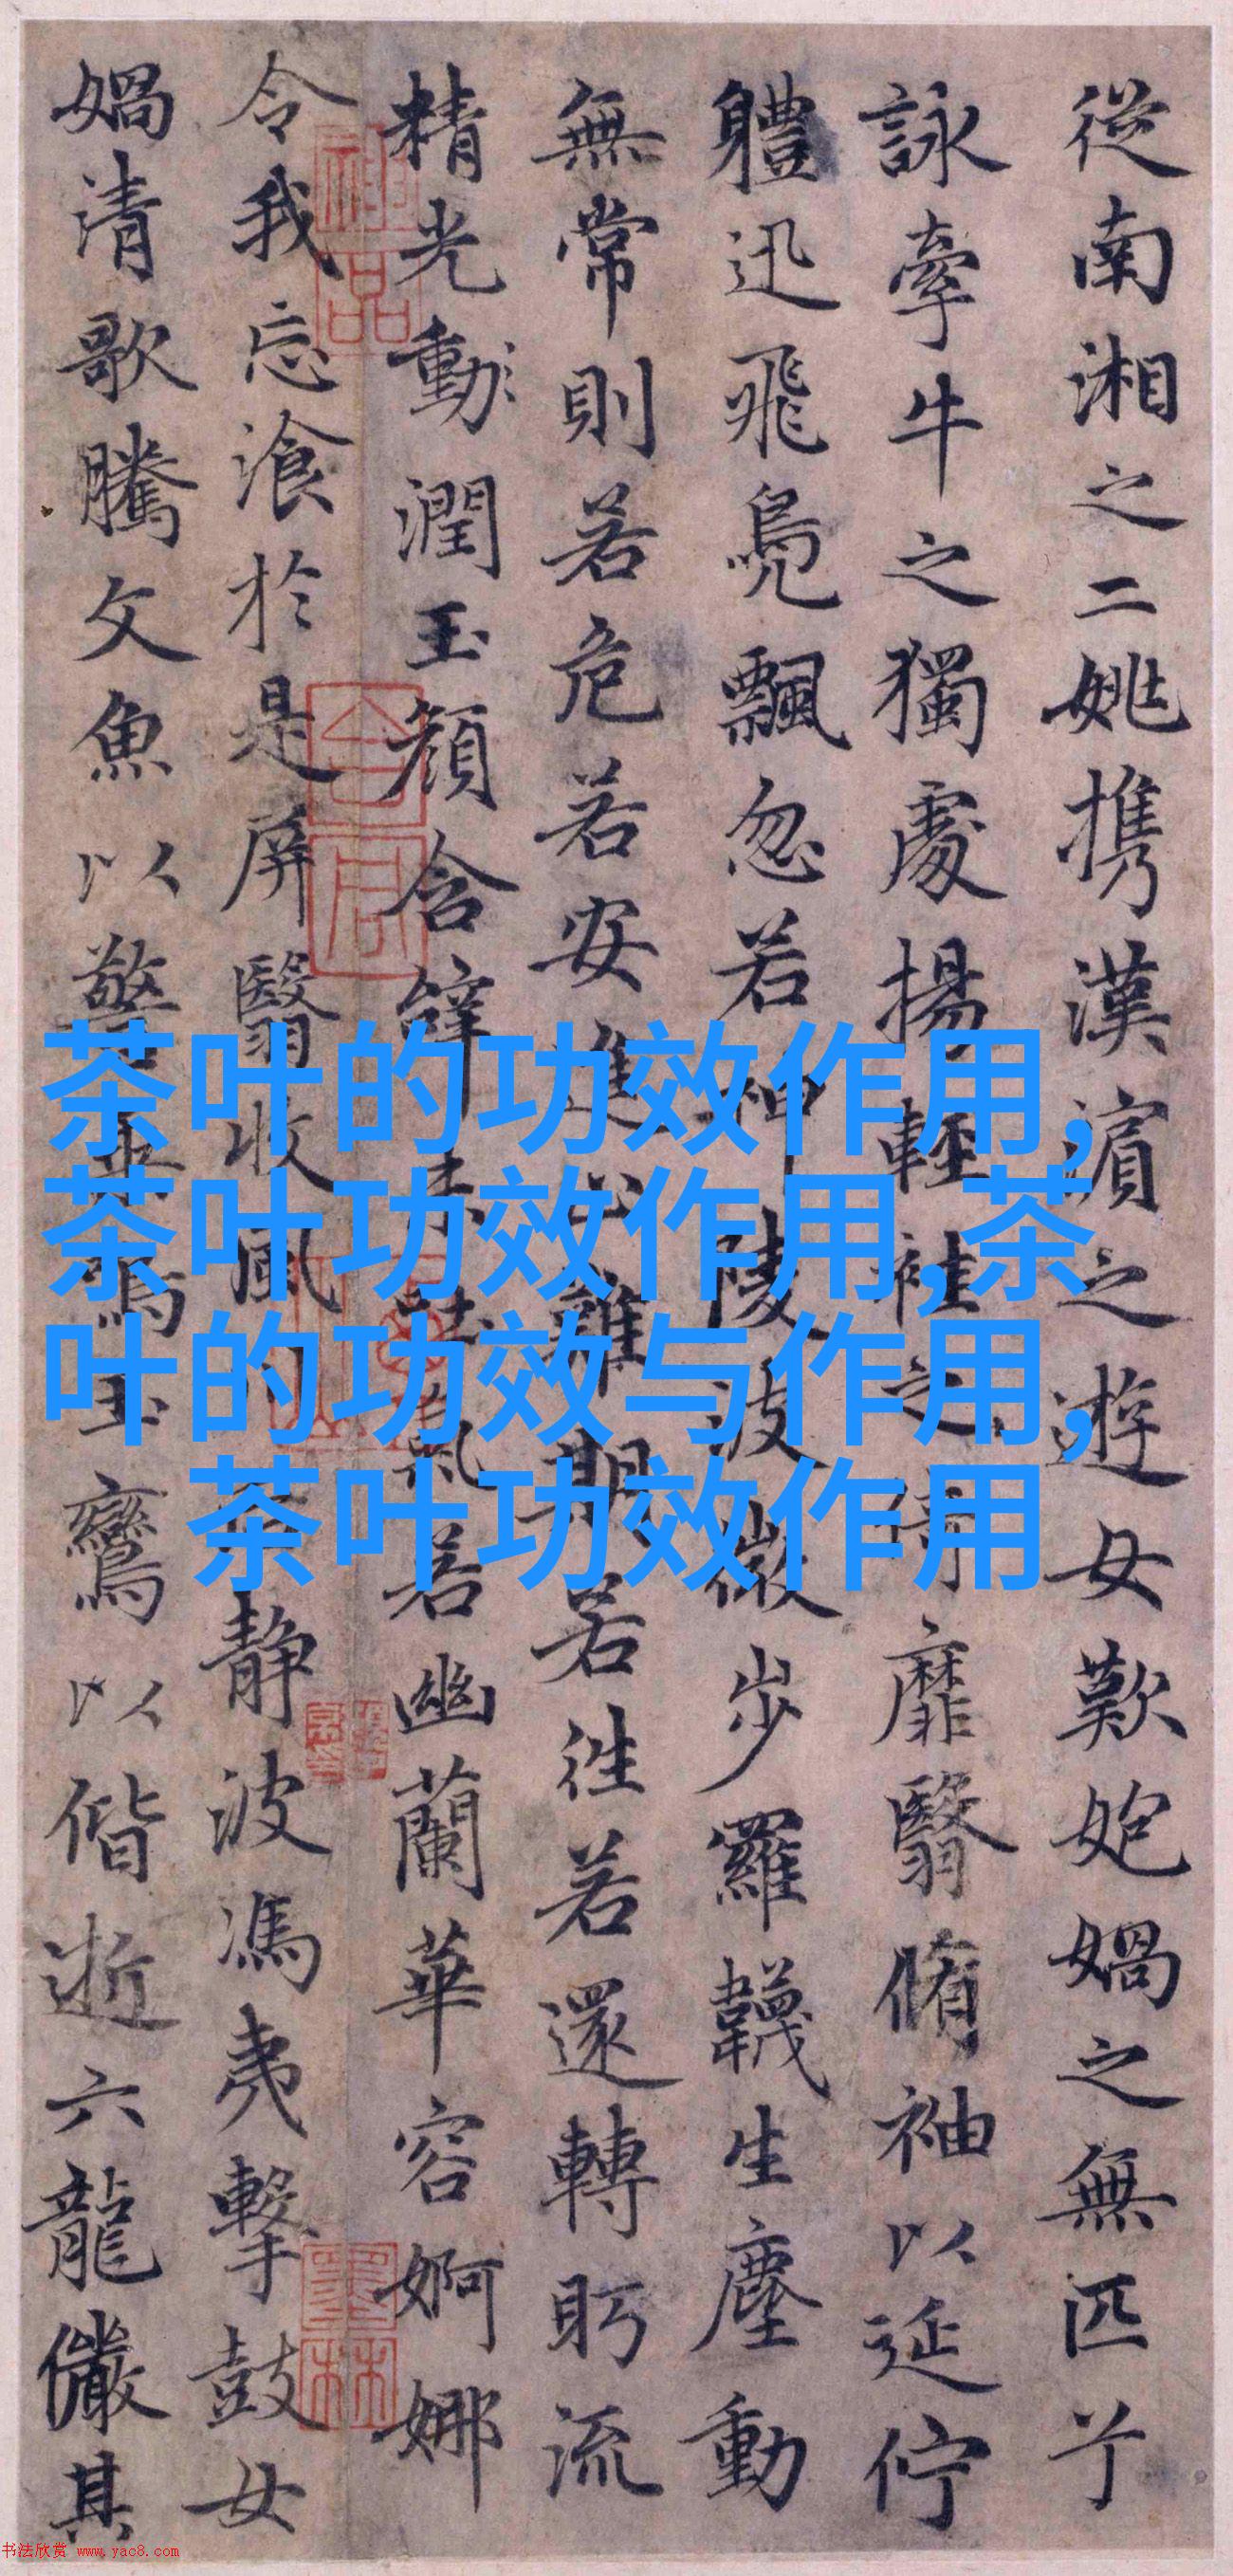 從南湘之二姚携漢濵之遊女歎媧之無匹兮
詠牽牛之獨處揚輕袿之猗靡翳脩袖以延佇
軆迅飛鳧飄忽若神陵波微步羅韈生塵動
無常則若危若安進止難期若往若還轉眄流
精光動潤玉顏含辭未吐氣若幽蘭華容婀娜
令我忘飡於是屏翳收風静波馮夷擊鼓女
媧清歌騰文魚以警鳴玉鸞以偕逝六龍儼其
茶叶的功效作用,
茶叶功效作用,茶
叶的功效与作用,
茶叶功效作用
书法欣赏 www.yac8.com